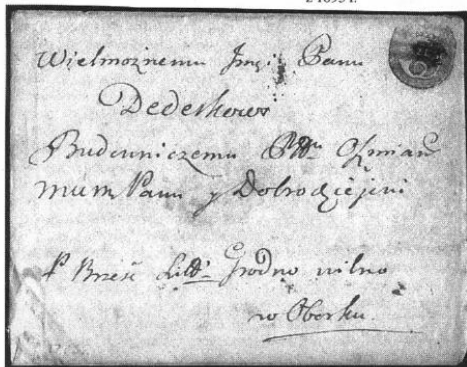 Wielmożnemu Jmć: Panu
Dederkowi
Budowniczemu Oszmiań
mum Panu y Dobrodziejowi
P Brześć Litt: Grodno wilno
w Oborku